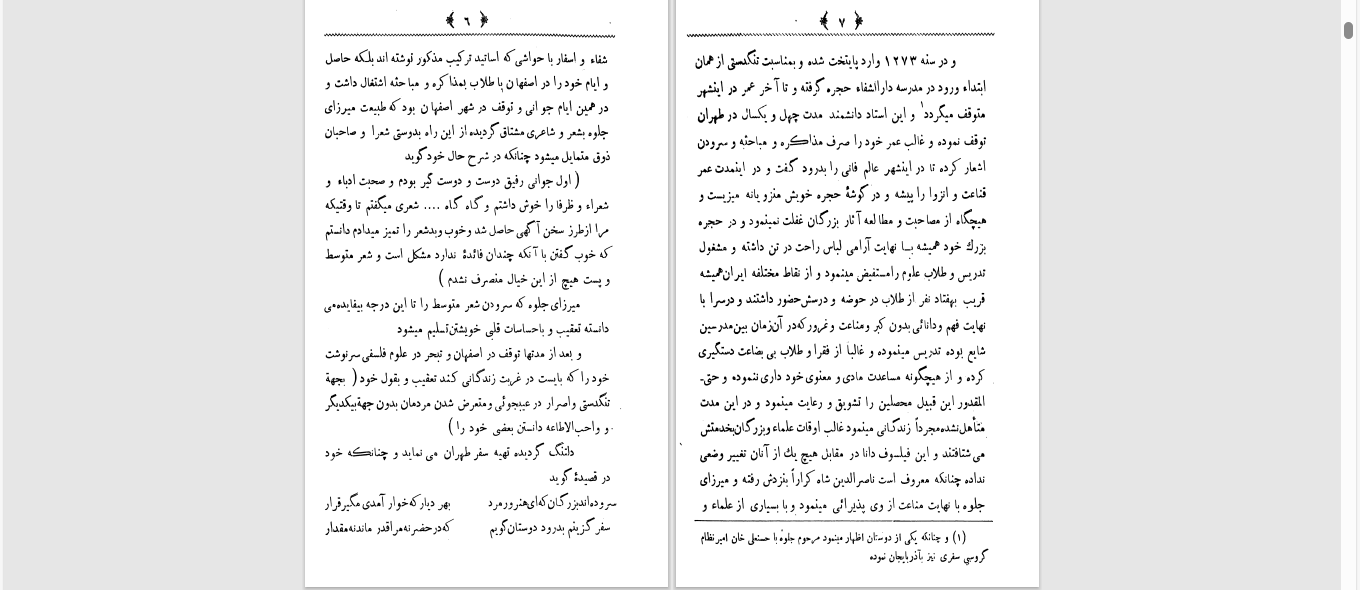 ﴿ ٦ ﴾
شفاء و اسفار با حواشی که اساتید ترکیب مذکور نوشته اند بلکه حاصل
و ایام خود را در اصفهان با طلاب بمذاکره و مباحثه اشتغال داشت و
در همین ایام جوانی و توقف در شهر اصفهان بود که طبیعت میرزای
جلوه بشعر و شاعری مشتاق گردیده از این راه بدوستی شعرا و صاحبان
ذوق متمایل میشود چنانکه در شرح حال خود گوید
( اول جوانی رفیق دوست و دوست گیر بودم و صحبت ادباء و
شعراء و ظرفا را خوش داشتم و گاه گاه .... شعری میگفتم تا وقتیکه
مرا ازطرز سخن آگهی حاصل شد وخوب وبدشعر را تمیز میدادم دانستم
که خوب گفتن با آنکه چندان فائدهٔ ندارد مشکل است و شعر متوسط
و پست هیچ از این خیال منصرف نشدم )
میرزای جلوه که سرودن شعر متوسط را تا این درجه بیفایده می
دانسته تعقیب و باحساسات قلبی خویشتن تسلیم میشود
و بعد از مدتها توقف در اصفهان و تبحر در علوم فلسفی سرنوشت
خود را که بایست در غربت زندگانی کند تعقیب و بقول خود ( بجهة
تنگدستی واصرار در عیبجوئی ومتعرض شدن مردمان بدون جهة بیکدیگر
و واجب‌الاطاعه دانستن بعضی خود را )
دلتنگ گردیده تهیه سفر طهران می نماید و چنانکه خود
در قصیدهٔ گوید
سروده‌اند بزرگان که ای هنرور مرد بهر دیار که خوار آمدی مگیر قرار
سفر گزینم بدرود دوستان گویم که در حضر نه مرا قدر ماند نه مقدار
﴿ ٧ ﴾
و در سنه ١٢٧٣ وارد پایتخت شده و بمناسبت تنگدستی از همان
ابتداء ورود در مدرسه دارالشفاء حجره گرفته و تا آخر عمر در اینشهر
متوقف میگردد١ و این استاد دانشمند مدت چهل و یکسال در طهران
توقف نموده و غالب عمر خود را صرف مذاکره و مباحثه و سرودن
اشعار کرده تا در اینشهر عالم فانی را بدرود گفت و در اینمدت عمر
قناعت و انزوا را پیشه و در گوشهٔ حجره خویش منزویانه میزیست و
هیچگاه از مصاحبت و مطالعه آثار بزرگان غفلت نمینمود و در حجره
بزرك خود همیشه بسا نهایت آرامی لباس راحت در تن داشته و مشغول
تدریس و طلاب علوم را مستفیض مینمود و از نقاط مختلفه ایران همیشه
قریب بهفتاد نفر از طلاب در حوضه و درسش حضور داشتند و درسرا با
نهایت فهم ودانائی بدون کبر ومناعت وغرور که در آن زمان بین مدرسین
شایع بوده تدریس مینموده و غالباً از فقرا و طلاب بی بضاعت دستگیری
کرده و از هیچگونه مساعدت مادی و معنوی خود داری ننموده و حتی-
المقدور این قبیل محصلین را تشویق و رعایت مینمود و در این مدت
متأهل نشده مجرداً زندگانی مینمود غالب اوقات علماء و بزرگان بخدمتش
می شتافتند و این فیلسوف دانا در مقابل هیچ یك از آنان تغییر وضعی
نداده چنانکه معروف است ناصرالدین شاه کراراً بنزدش رفته و میرزای
جلوه با نهایت مناعت از وی پذیرائی مینمود و با بسیاری از علماء و
(١) و چنانکه یکی از دوستان اظهار مینمود مرحوم جلوه با حسنعلی خان امیر نظام
گروسی سفری نیز بآذربایجان نموده